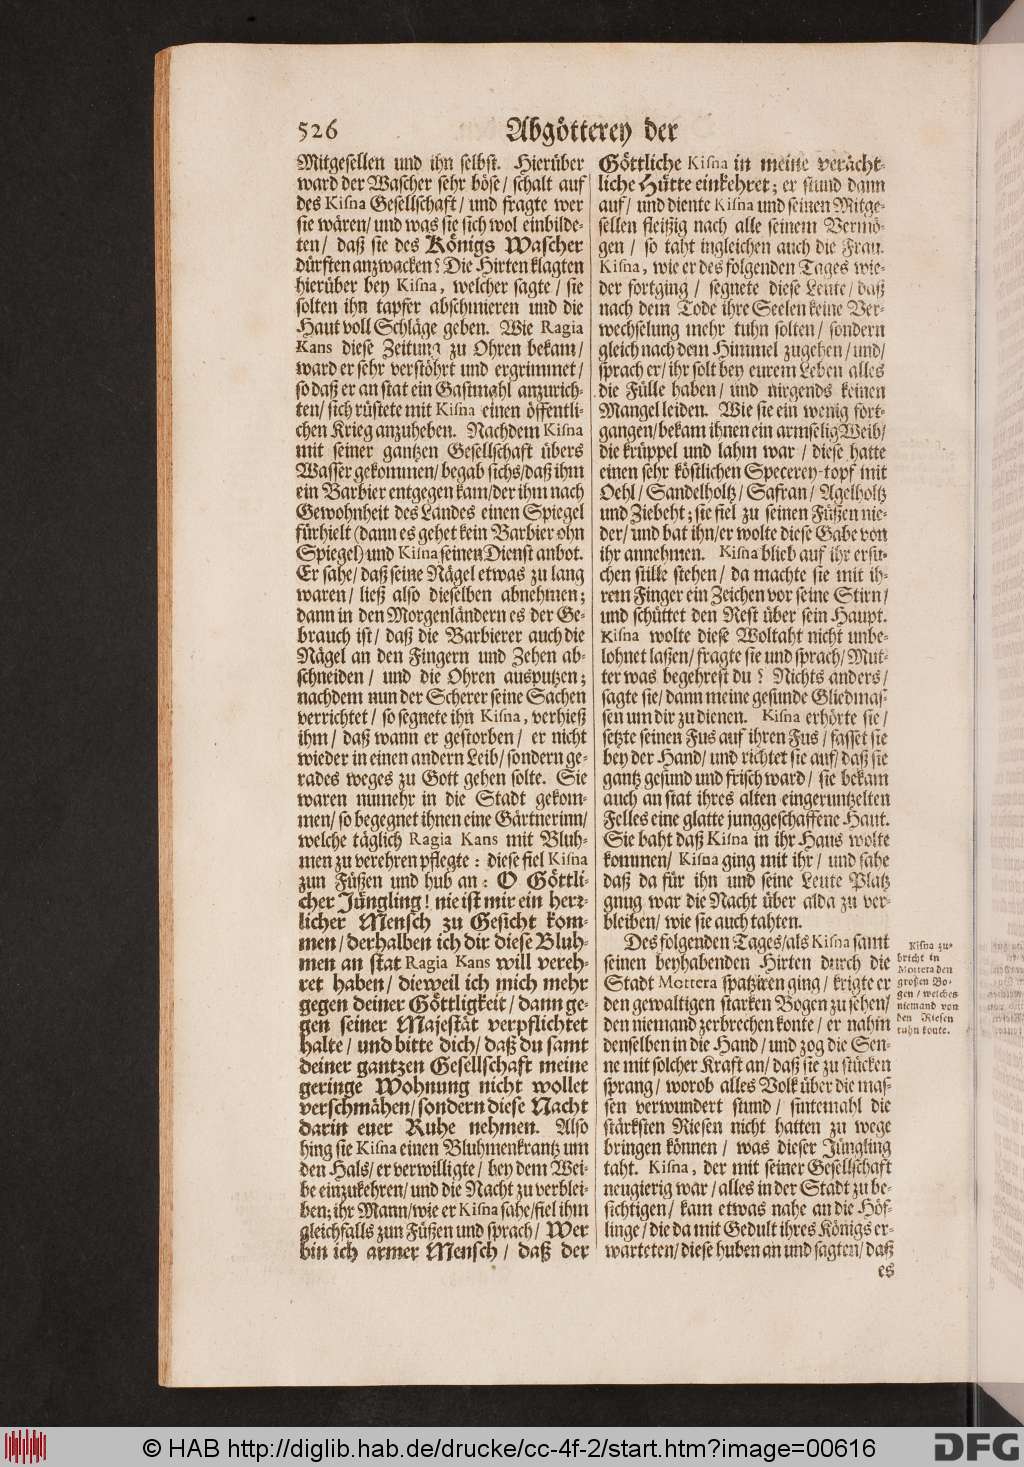 526
Abgötterey der
Mitgesellen und ihn selbst. Hierüber
ward der Wascher sehr böse/ schalt auf
des Kisna Gesellschaft/ und fragte wer
sie wären/ und was sie sich wol einbilde-
ten/ daß sie des Königs Wascher
dürften anzwacken? Die Hirten klagten
hierüber bey Kisna, welcher sagte/ sie
solten ihn tapfer abschmieren und die
Haut voll Schläge geben. Wie Ragia
Kans diese Zeitung zu Ohren bekam/
ward er sehr verstöhrt und ergrimmet/
so daß er an stat ein Gastmahl anzurich-
ten/ sich rüstete mit Kisna einen öffentli-
chen Krieg anzuheben. Nachdem Kisna
mit seiner gantzen Gesellschaft übers
Wasser gekommen/ begab sichs/ daß ihm
ein Barbier entgegen kam/ der ihm nach
Gewohnheit des Landes einen Spiegel
fürhielt (dann es gehet kein Barbier ohn
Spiegel) und Kisna seinen Dienst anbot.
Er sahe/ daß seine Nägel etwas zu lang
waren/ ließ also dieselben abnehmen;
dann in den Morgenländern es der Ge-
brauch ist/ daß die Barbierer auch die
Nägel an den Fingern und Zehen ab-
schneiden/ und die Ohren ausputzen;
nachdem nun der Scherer seine Sachen
verrichtet/ so segnete ihn Kisna, verhieß
ihm/ daß wann er gestorben/ er nicht
wieder in einen andern Leib/ sondern ge-
rades weges zu Gott gehen solte. Sie
waren numehr in die Stadt gekom-
men/ so begegnet ihnen eine Gärtnerinn/
welche täglich Ragia Kans mit Bluh-
men zu verehren pflegte: diese fiel Kisna
zun Füßen und hub an: O Göttli-
cher Jüngling! nie ist mir ein hertz-
licher Mensch zu Gesicht kom-
men/ derhalben ich dir diese Bluh-
men an stat Ragia Kans will vereh-
ret haben/ dieweil ich mich mehr
gegen deiner Göttligkeit/ dann ge-
gen seiner Majestät verpflichtet
halte/ und bitte dich/ daß du samt
deiner gantzen Gesellschaft meine
geringe Wohnung nicht wollet
verschmähen/ sondern diese Nacht
darin euer Ruhe nehmen. Also
hing sie Kisna einen Bluhmenkrantz um
den Hals/ er verwilligte/ bey dem Wei-
be einzukehren/ und die Nacht zu verblei-
ben; ihr Mann/ wie er Kisna sahe/ fiel ihm
gleichfalls zun Füßen und sprach/ Wer
bin ich armer Mensch/ daß der
Göttliche Kisna in meine verächt-
liche Hütte einkehret; er stund dann
auf/ und diente Kisna und seinen Mitge-
sellen fleißig nach alle seinem Vermö-
gen/ so taht ingleichen auch die Frau.
Kisna, wie er des folgenden Tages wie-
der fortging/ segnete diese Leute/ daß
nach dem Tode ihre Seelen keine Ver-
wechselung mehr tuhn solten/ sondern
gleich nach dem Himmel zugehen/ und/
sprach er/ ihr solt bey eurem Leben alles
die Fülle haben/ und nirgends keinen
Mangel leiden. Wie sie ein wenig fort-
gangen/ bekam ihnen ein armselig Weib/
die krüppel und lahm war/ diese hatte
einen sehr köstlichen Specerey-topf mit
Oehl/ Sandelholtz/ Safran/ Agelholtz
und Ziebeht; sie fiel zu seinen Füßen nie-
der/ und bat ihn/ er wolte diese Gabe von
ihr annehmen. Kisna blieb auf ihr ersu-
chen stille stehen/ da machte sie mit ih-
rem Finger ein Zeichen vor seine Stirn/
und schüttet den Rest über sein Haupt.
Kisna wolte diese Woltaht nicht unbe-
lohnet laßen/ fragte sie und sprach/ Mut-
ter was begehrest du? Nichts anders/
sagte sie/ dann meine gesunde Gliedmas-
sen um dir zu dienen. Kisna erhörte sie/
setzte seinen Fus auf ihren Fus/ fasset sie
bey der Hand/ und richtet sie auf/ daß sie
gantz gesund und frisch ward/ sie bekam
auch an stat ihres alten eingeruntzelten
Felles eine glatte junggeschaffene Haut.
Sie baht daß Kisna in ihr Haus wolte
kommen/ Kisna ging mit ihr/ und sahe
daß da für ihn und seine Leute Platz
gnug war die Nacht über alda zu ver-
bleiben/ wie sie auch tahten.
Des folgenden Tages/ als Kisna samt
seinen beyhabenden Hirten durch die
Stadt Mottera spatziren ging/ krigte er
den gewaltigen starken Bogen zu sehen/
den niemand zerbrechen konte/ er nahm
denselben in die Hand/ und zog die Sen-
ne mit solcher Kraft an/ daß sie zu stücken
sprang/ worob alles Volk über die mas-
sen verwundert stund/ sintemahl die
stärksten Riesen nicht hatten zu wege
bringen können/ was dieser Jüngling
taht. Kisna, der mit seiner Gesellschaft
neugierig war/ alles in der Stadt zu be-
sichtigen/ kam etwas nahe an die Höf-
linge/ die da mit Gedult ihres Königs er-
warteten/ diese huben an und sagten/ daß
es
Kisna zu-
bricht in
Mottera den
großen Bo-
gen/ welches
niemand von
den Riesen
tuhn konte.
© HAB http://diglib.hab.de/drucke/cc-4f-2/start.htm?image=00616
DFG